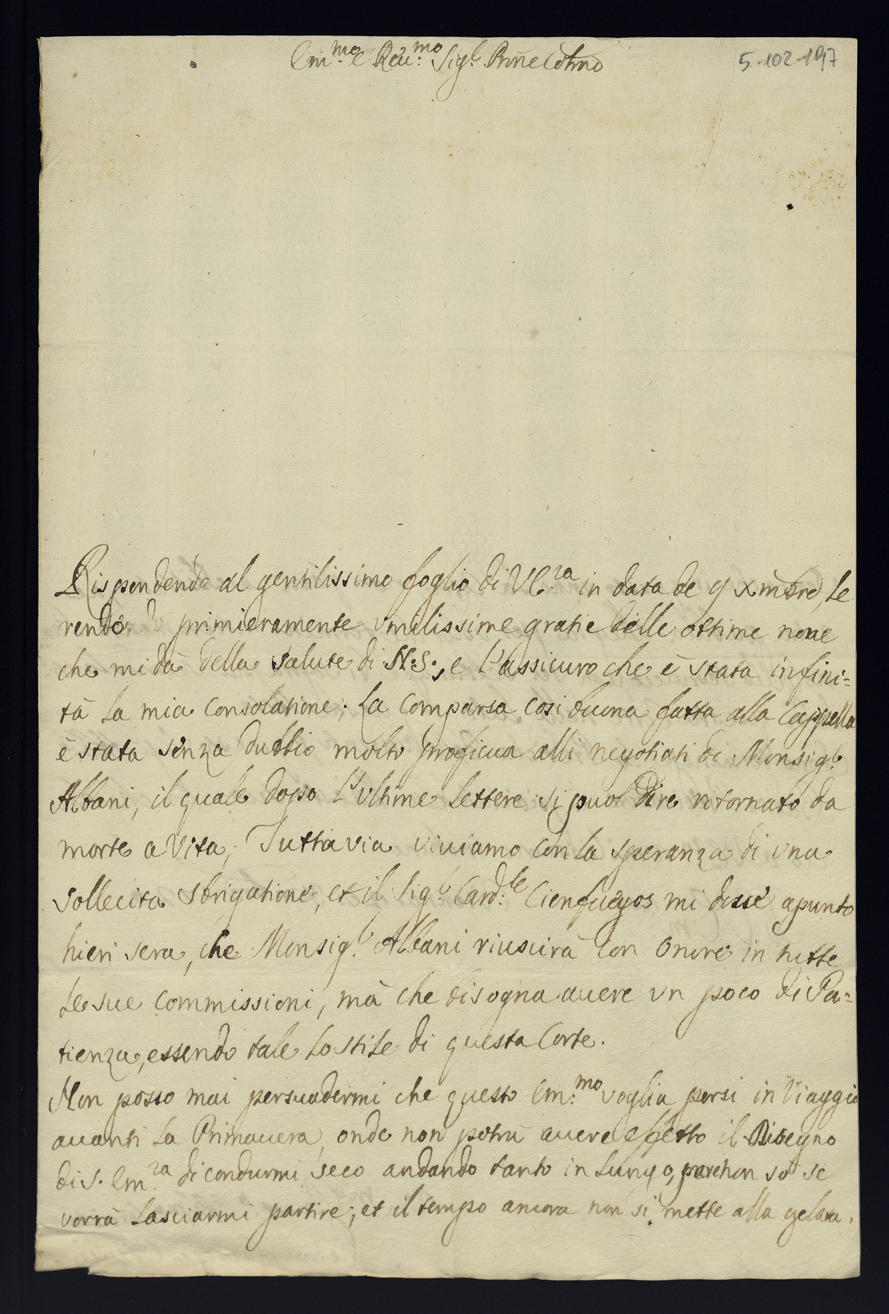 Em.mo e Rev.mo Sig.r Prone Colmo
5-102-197
Rispondendo al gentilissimo foglio di VE.za in data de 9 xmbre, le
rendo primieramente umilissime gratie delle ottime nove
che mi dà della salute di N.S., e l'assicuro che è stata infini=
tà la mia consolatione; La comparsa così buona fatta alla Cappella
è stata senza dubbio molto proficua alli negotiati di Monsig.r
Albani, il quale dopo l'ultime lettere si può dire ritornato da
morte a Vita; Tuttavia viviamo con la speranza di una
sollecita sbrigatione, et il Sig.r Card.le Cienfuegos mi disse apunto
hieri sera, che Monsig.r Albani riuscirà con onore in tutte
le sue commissioni, mà che bisogna avere un poco di Pa=
tienza, essendo tale lo stile di questa Corte.
Non posso mai persuadermi che questo Em.mo voglia porsi in Viaggio
avanti la Primavera, onde non potrà avere effetto il Disegno
di S. Em.za di condurmi seco andando tanto in lungo, perche non so se
vorrà lasciarmi partire; et il tempo ancora non si mette alla gelata.